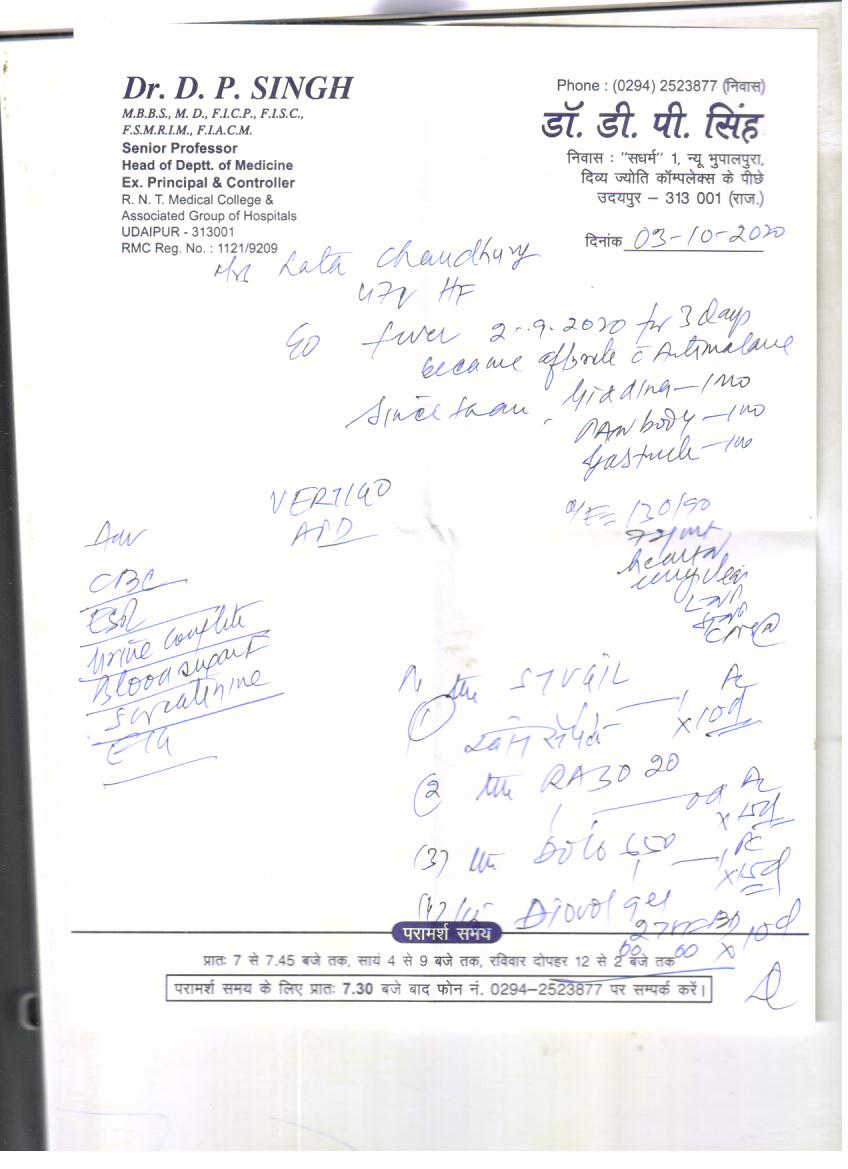 Dr. D. P. SINGH
M.B.B.S., M. D., F.I.C.P., F.I.S.C.,
F.S.M.R.I.M., F.I.A.C.M.
Senior Professor
Head of Deptt. of Medicine
Ex. Principal & Controller
R. N. T. Medical College &
Associated Group of Hospitals
UDAIPUR - 313001
RMC Reg. No. : 1121/9209
Phone : (0294) 2523877 (निवास)
डॉ. डी. पी. सिंह
निवास : "सधर्म" 1, न्यू भुपालपुरा,
दिव्य ज्योति कॉम्पलेक्स के पीछे
उदयपुर – 313 001 (राज.)
दिनांक 03-10-2020
Mrs Lata Chaudhury
47y HF
fever 2-9-2020 for 3 days
became afebrile c Antimalarial
Since then
body
VERTIGO
APD
O/E 130/90
Adv
CBC
ESR
Urine Complete
Blood sugar
S creatinine
ECG
(1) STUGIL
x 10d
(2) RAZO 20
1 od x 15d
(3) DOLO 650
x 15d
Diovol gel
x 10d
परामर्श समय
प्रातः 7 से 7.45 बजे तक, सायं 4 से 9 बजे तक, रविवार दोपहर 12 से 2 बजे तक
परामर्श समय के लिए प्रातः 7.30 बजे बाद फोन नं. 0294–2523877 पर सम्पर्क करें।